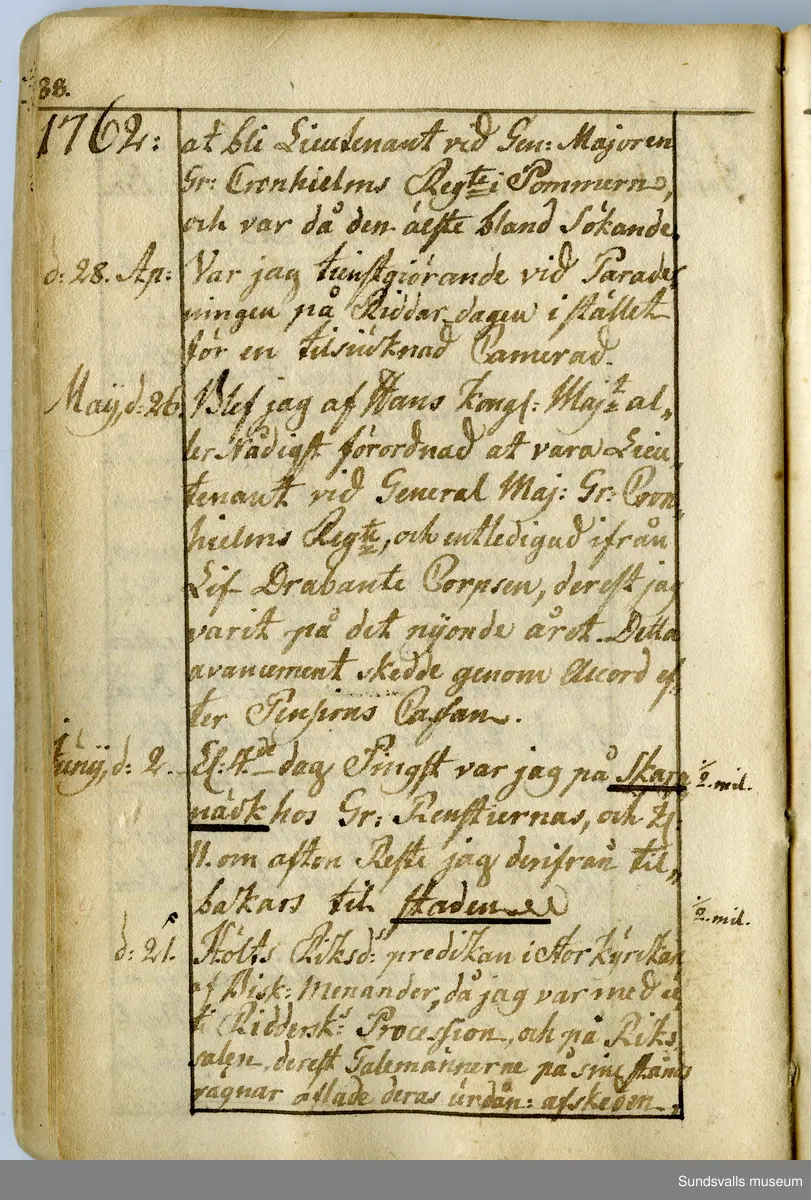 88.
1762: at bli Lieutenant vid Gen: Majoren
Gr: Cronhielms Regte i Pommern,
och var då den älste bland Sökande.
d: 28. Ap: Var jag tienstgiörande vid Parade,
ningen på Riddar-dagen i stället
för en tilsiuknad Camerad.
Maÿ, d: 26. Blef jag af Hans Kongl: Majt al„
ler Nådigst förordnad at vara Lieu„
tenant vid General Maj: Gr: Cron„
hielms Regte, och entledigad ifrån
Lif Drabante Corpsen, derest jag
varit på det nÿonde året. Detta
avancement skedde genom Accord ef„
ter Pensions Cassan.
Junÿ, d: 2. El: 4de dag Pingst var jag på Skarp„ 1/2. mil.
näck hos Gr: Renstiernas, och kl:
11. om afton Reste jag derifrån til„
bakars til staden 1/2. mil.
d: 21. Hölts Riksd: predikan i Storkÿrckan
af Bisk: Menander, då jag var med uti
Riddersk: Procession, och på Riks„
salen, derest Talemännerne på sine stånds
vägnar aflade deras urdän: afskeden,
Sundsvalls museum